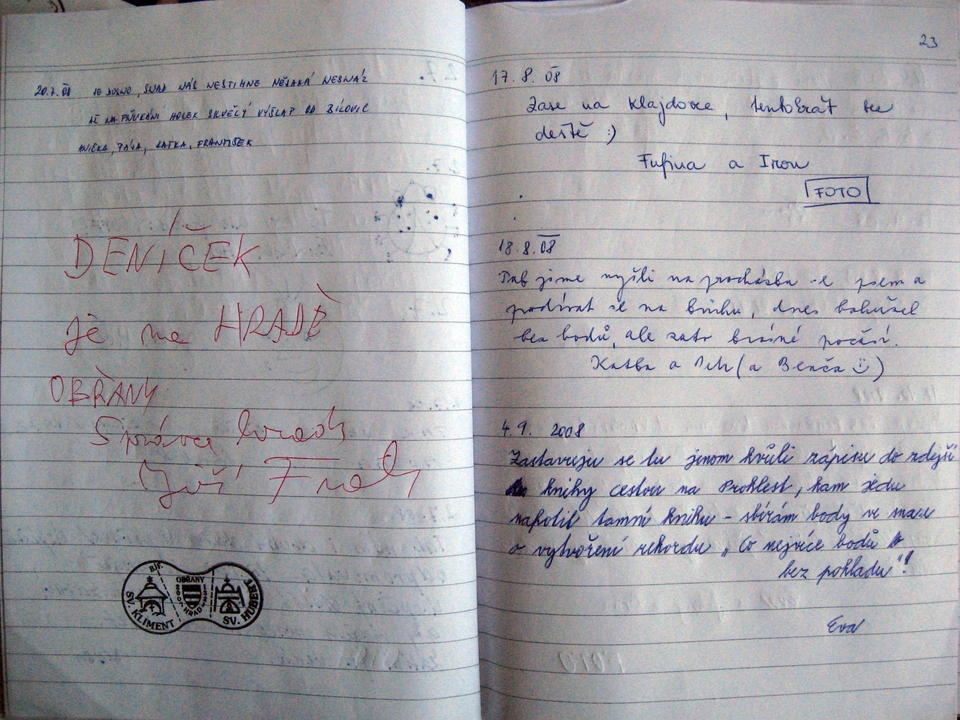 20.7.08 JE DUSNO, SNAD NÁS NESTIHNE NĚJAKÁ NESNÁZ
AŽ NA FŇUKÁNÍ HOLEK SKVĚLÝ VÝŠLAP OD BÍLOVIC
FRANTIŠEK
DENÍČEK
je na HRADĚ
OBŘANY
Správce hradu
Jiří
BIF.
SV. KLIMENT
OBŘANY
HRAD
SV. HUBERT
23
17. 8. 08
Zase na Klajdovce, tentokrát za
deště :)
a Iron
FOTO
18. 8. 08
Tak jsme vyšli na procházku se psem a
podívat se na knihu, dnes bohužel
bez bodů, ale zato krásné počasí.
Katka a (a ☺)
4. 9. 2008
Zastavuju se tu jenom kvůli zápisu do zdejší
knihy cestou na Proklest, kam jedu
nakolit tamní knihu - sbírám body ve snaze
o vytvoření rekordu „Co nejvíce bodů
bez pokladu"!
Eva